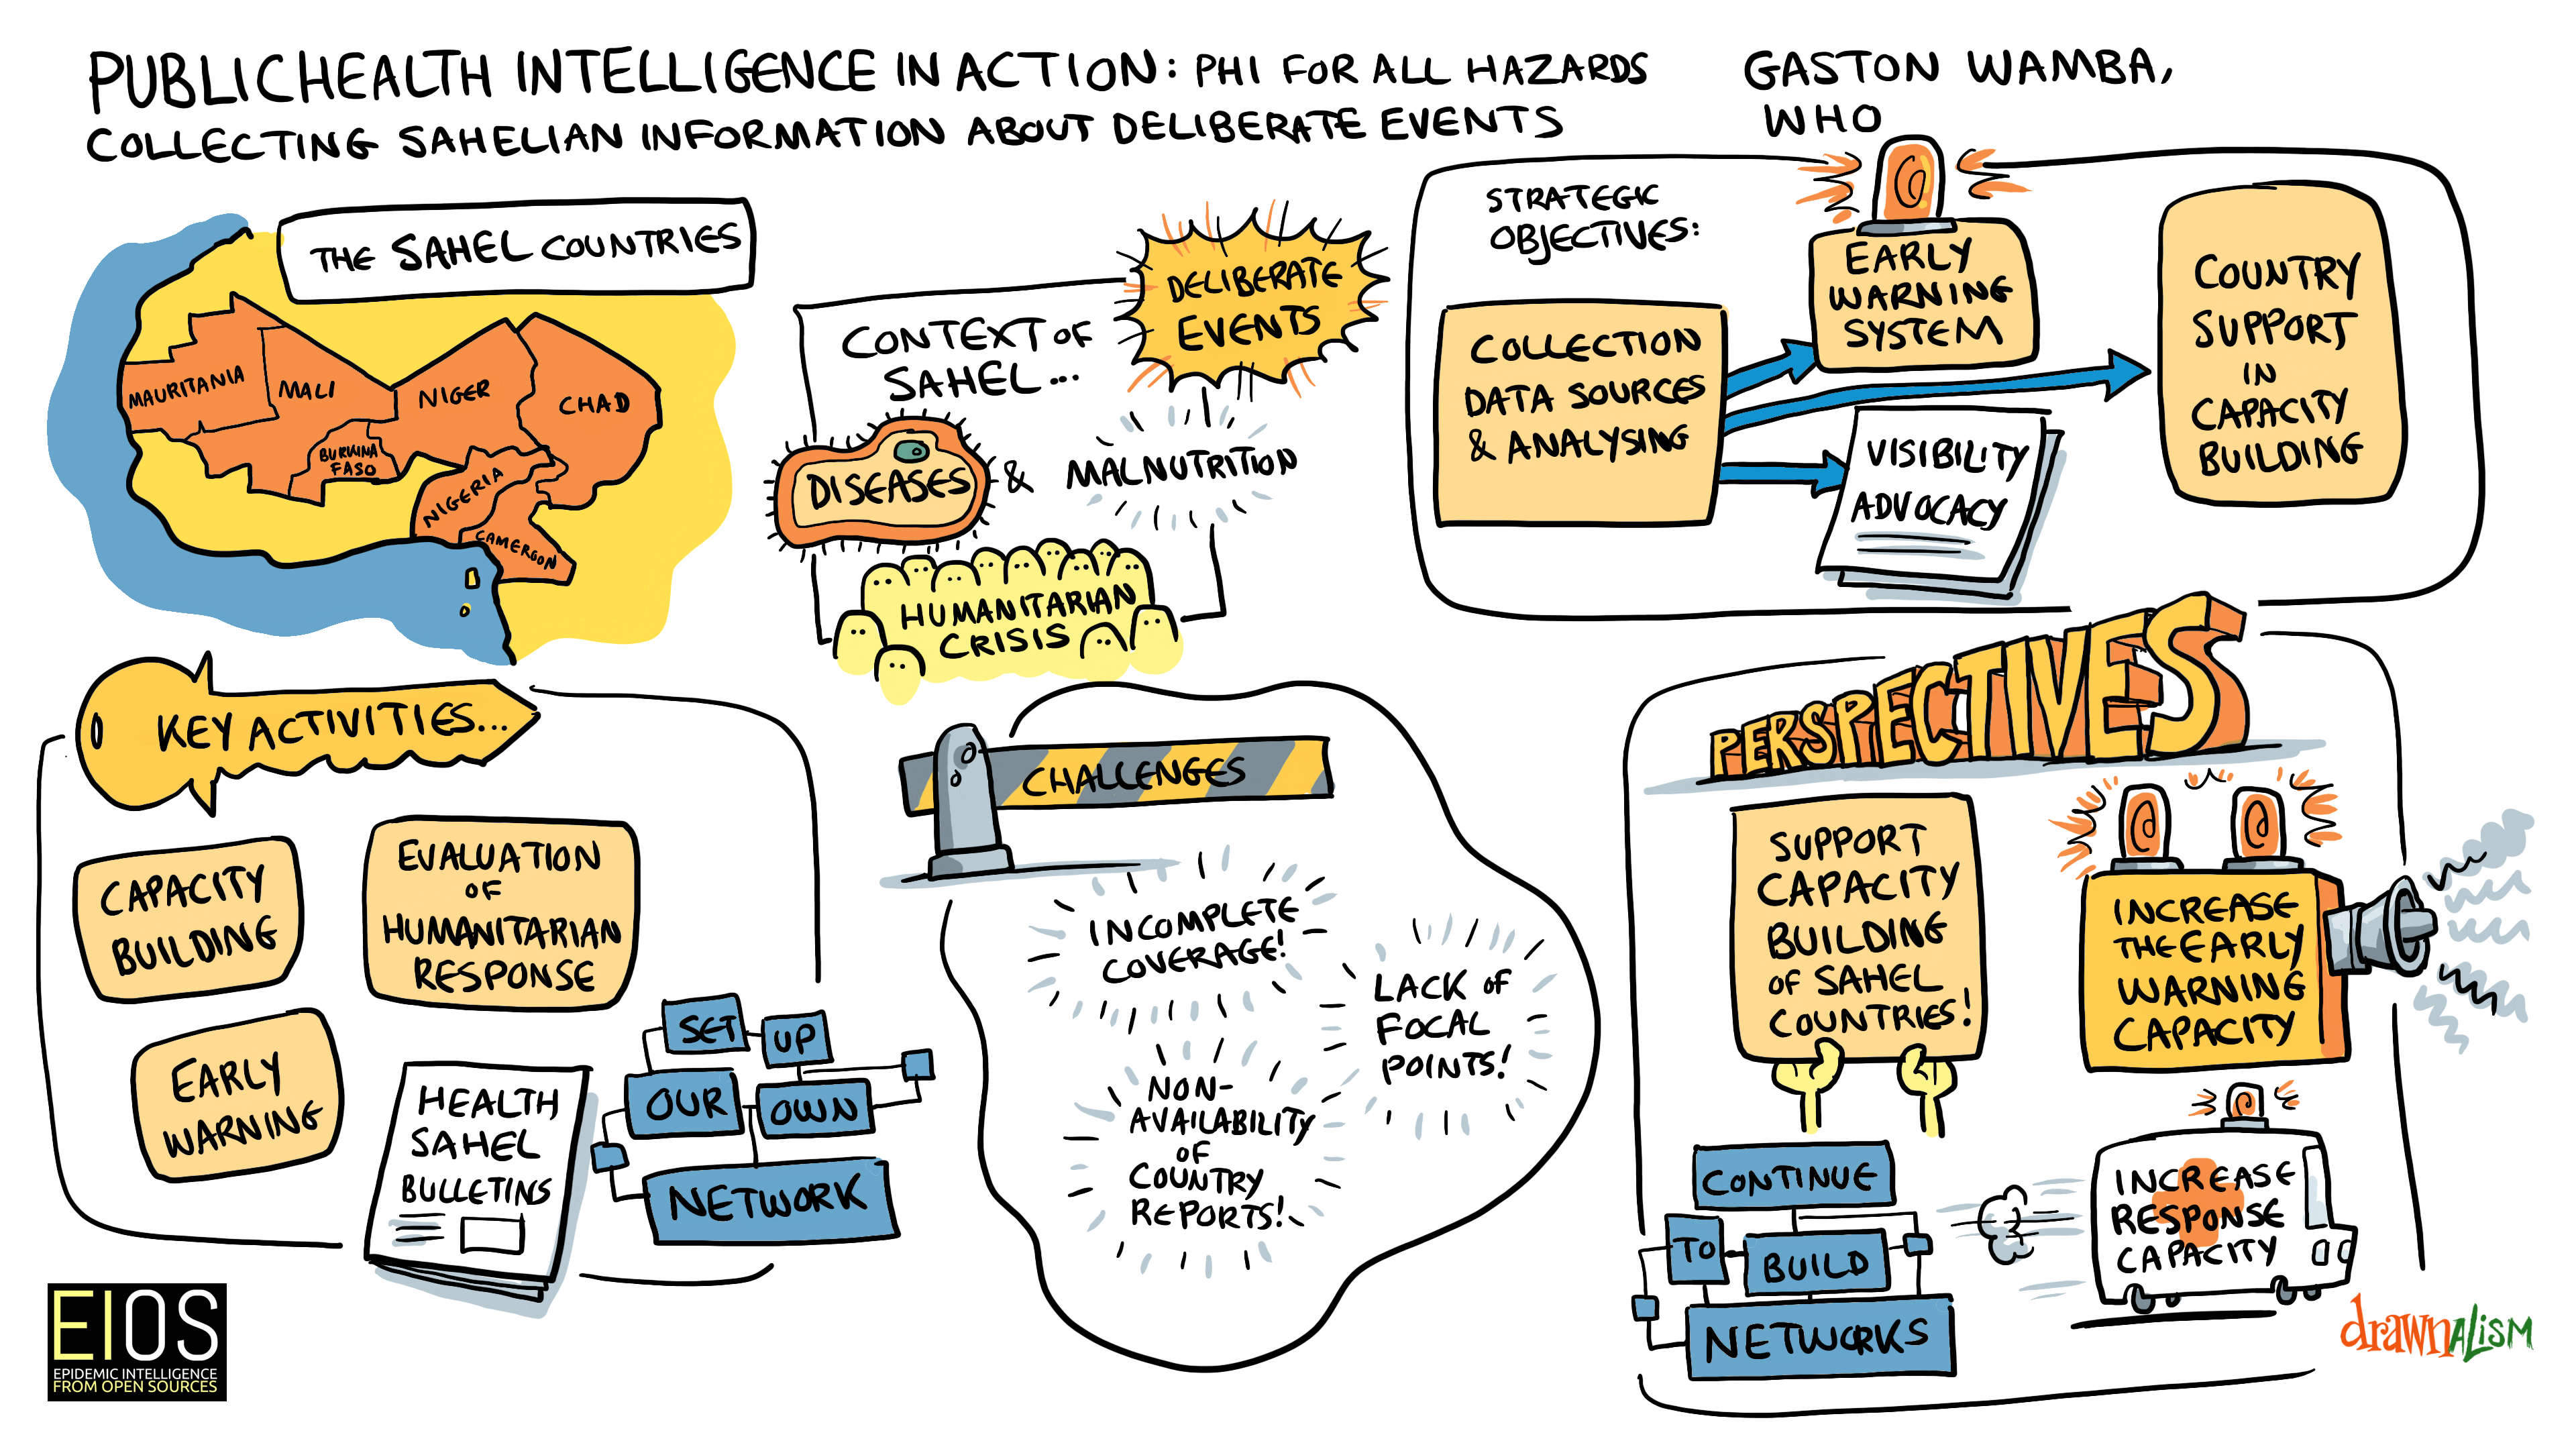 PUBLIC HEALTH INTELLIGENCE IN ACTION: PHI FOR ALL HAZARDS
COLLECTING SAHELIAN INFORMATION ABOUT DELIBERATE EVENTS
GASTON WAMBA,
WHO
THE SAHEL COUNTRIES
MAURITANIA
MALI
NIGER
CHAD
BURKINA
FASO
NIGERIA
CAMEROON
CONTEXT OF
SAHEL...
DELIBERATE
EVENTS
DISEASES
&
MALNUTRITION
HUMANITARIAN
CRISIS
STRATEGIC
OBJECTIVES:
COLLECTION
DATA SOURCES
& ANALYSING
EARLY
WARNING
SYSTEM
VISIBILITY
ADVOCACY
COUNTRY
SUPPORT
IN
CAPACITY
BUILDING
KEY ACTIVITIES...
CAPACITY
BUILDING
EVALUATION
OF
HUMANITARIAN
RESPONSE
EARLY
WARNING
HEALTH
SAHEL
BULLETINS
SET UP
OUR OWN
NETWORK
CHALLENGES
INCOMPLETE
COVERAGE!
LACK OF
FOCAL
POINTS!
NON-
AVAILABILITY
OF
COUNTRY
REPORTS!
PERSPECTIVES
SUPPORT
CAPACITY
BUILDING
OF SAHEL
COUNTRIES!
INCREASE
THE EARLY
WARNING
CAPACITY
CONTINUE
TO BUILD
NETWORKS
INCREASE
RESPONSE
CAPACITY
EIOS
EPIDEMIC INTELLIGENCE
FROM OPEN SOURCES
drawnALiSM